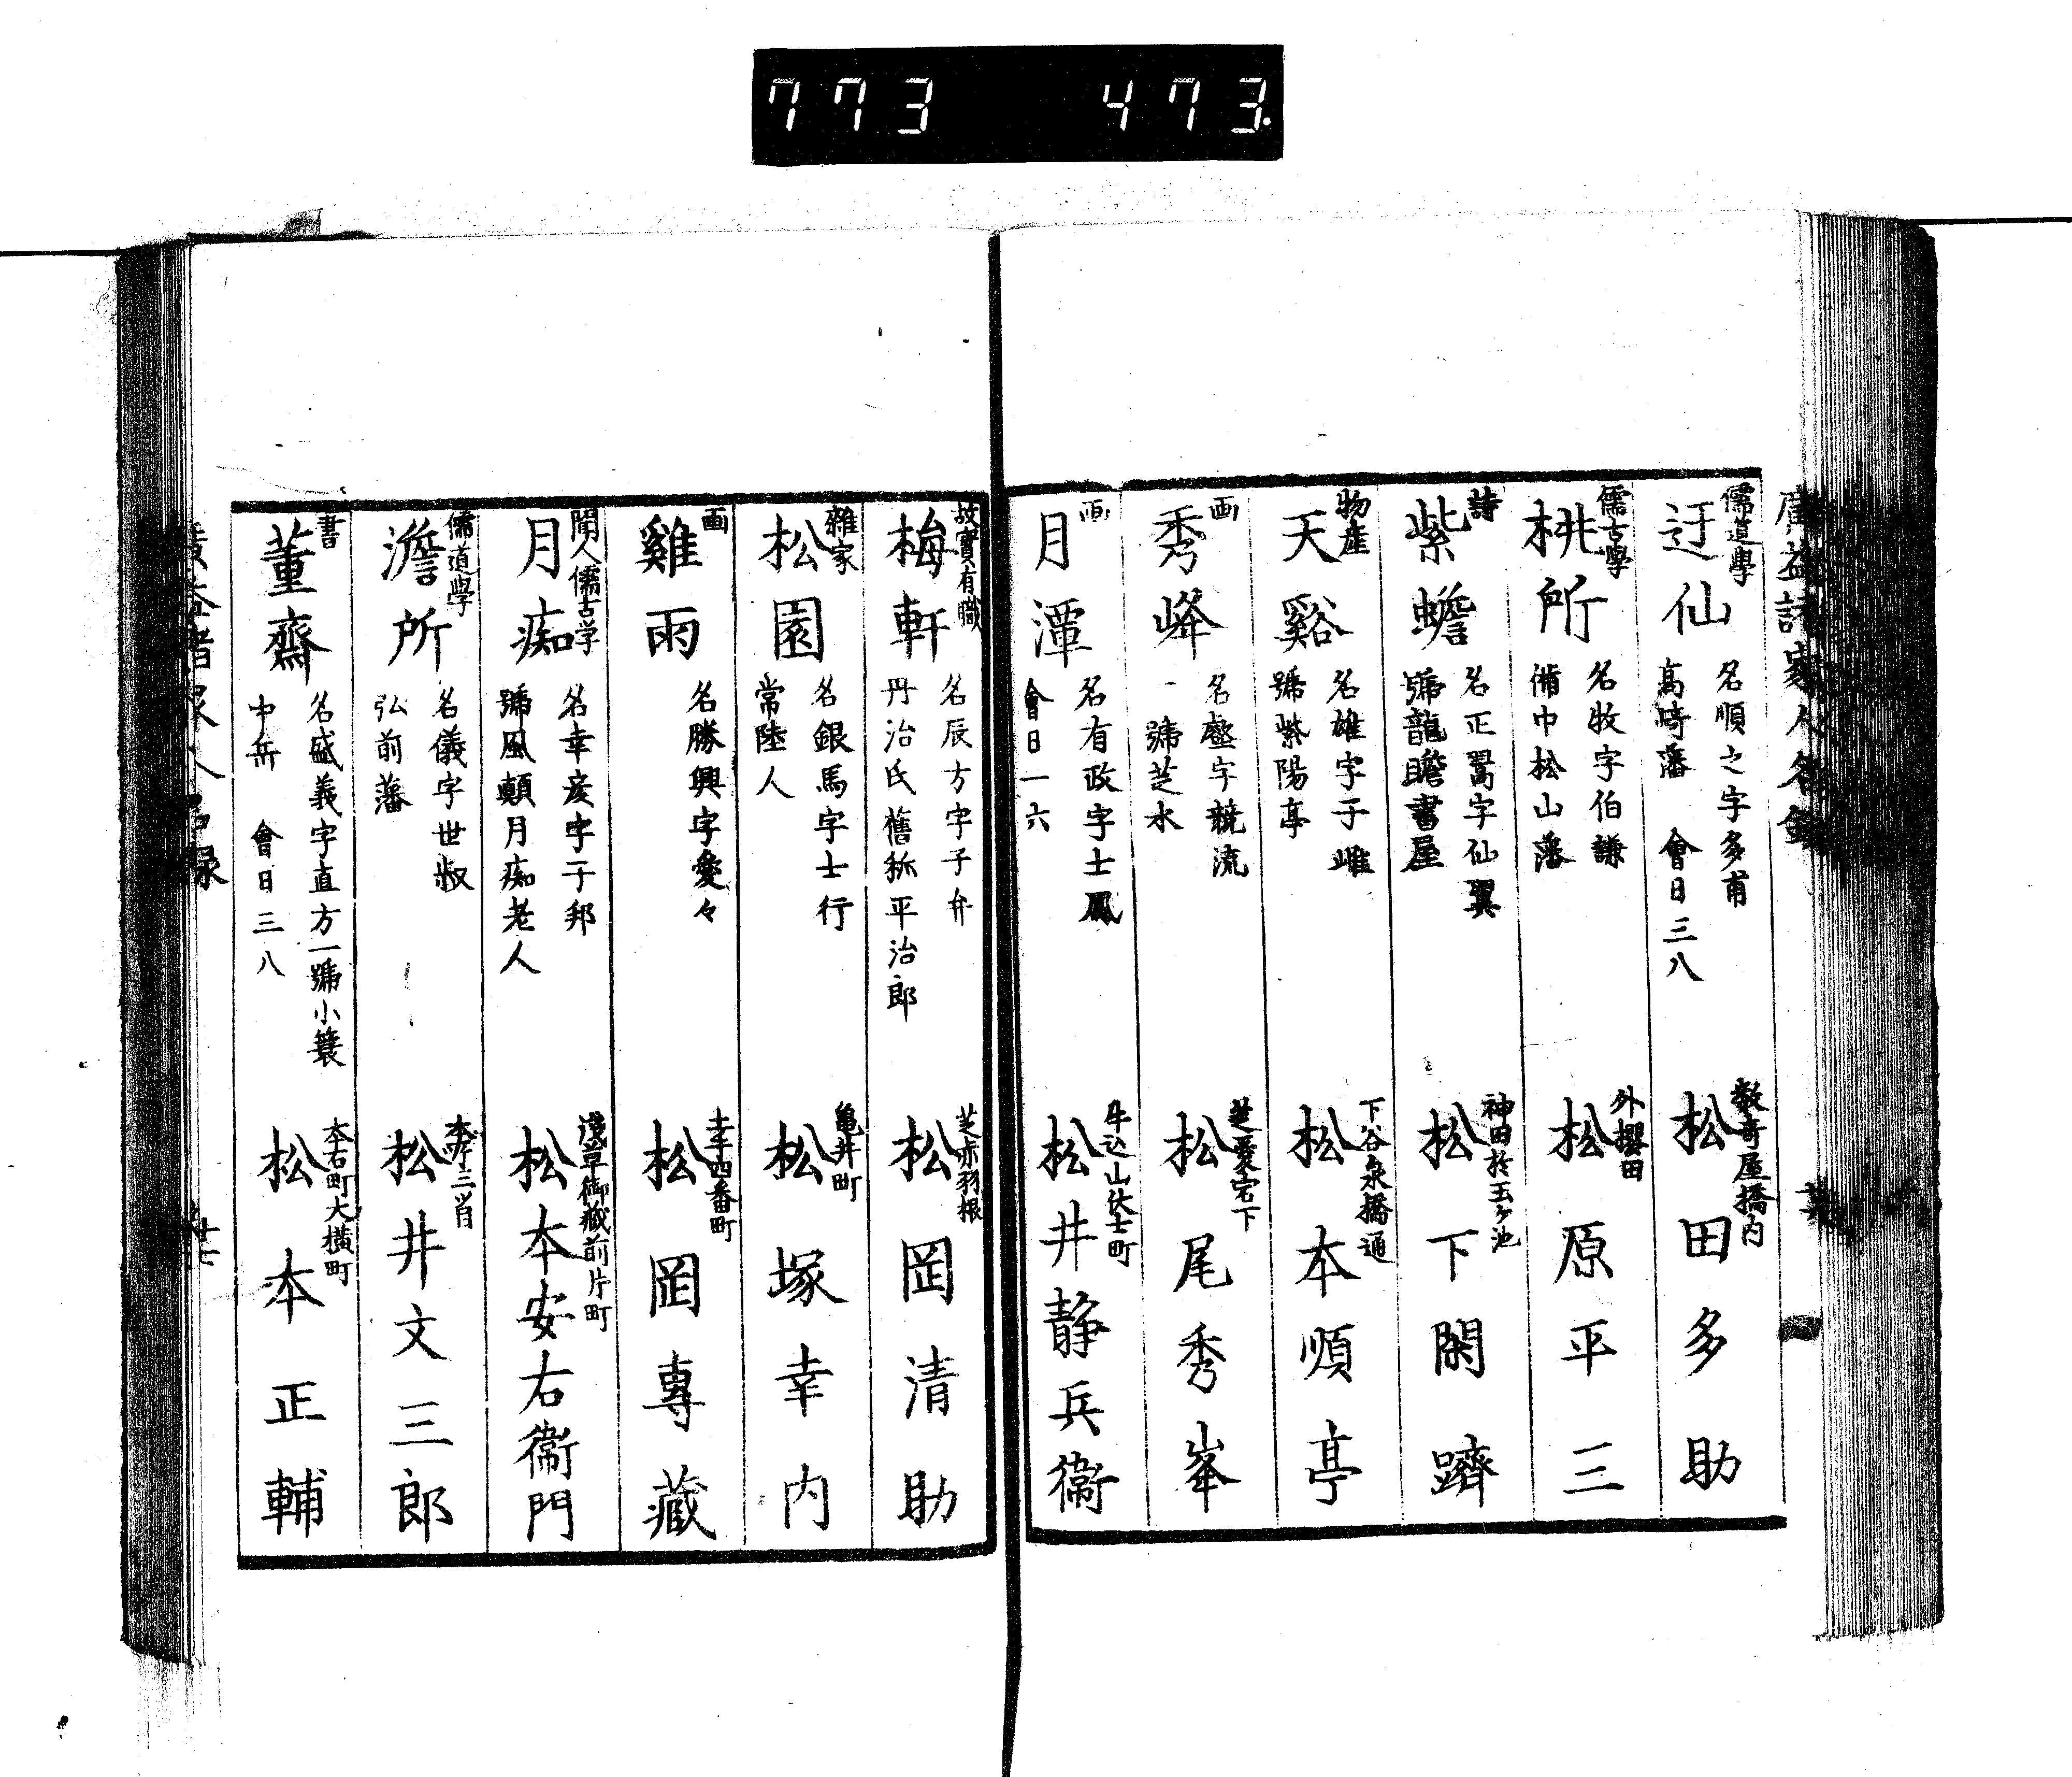 773 473.
廣益諸家人名録
儒道學
迂仙
名順之字多甫
高崎藩 會日三八
數寄屋橋内
松田多助
儒古學
桃所
名牧字伯謙
備中松山藩
外櫻田
松原平三
詩
紫蟾
名正翯字仙翼
號龍瞻書屋
神田於玉ケ池
松下閑躋
物産
天谿
名雄字子雌
號紫陽亭
下谷泉橋通
松本順亭
画
秀峰
字競流
一號芝水
芝愛宕下
松尾秀峯
画
月潭
名有政字士鳳
會日一六
牛込山伏士町
松井静兵衞
故實有職
梅軒
名辰方字子弁
丹治氏舊称平治郎
芝赤羽根
松岡清助
雜家
松園
名銀馬字士行
常陸人
亀井町
松塚幸内
画
雞雨
名勝興字愛々
土手四番町
松岡專藏
聞人儒古学
月痴
名幸彦字子邦
號風顛月痴老人
淺草御藏前片町
松本安右衞門
儒道學
澹所
名儀字世叔
弘前藩
本所三ツ目
松井文三郎
書
董齋
名盛義字直方一號小簑
中兵 會日三八
本石町大横町
松本正輔
廣益諸家人名録